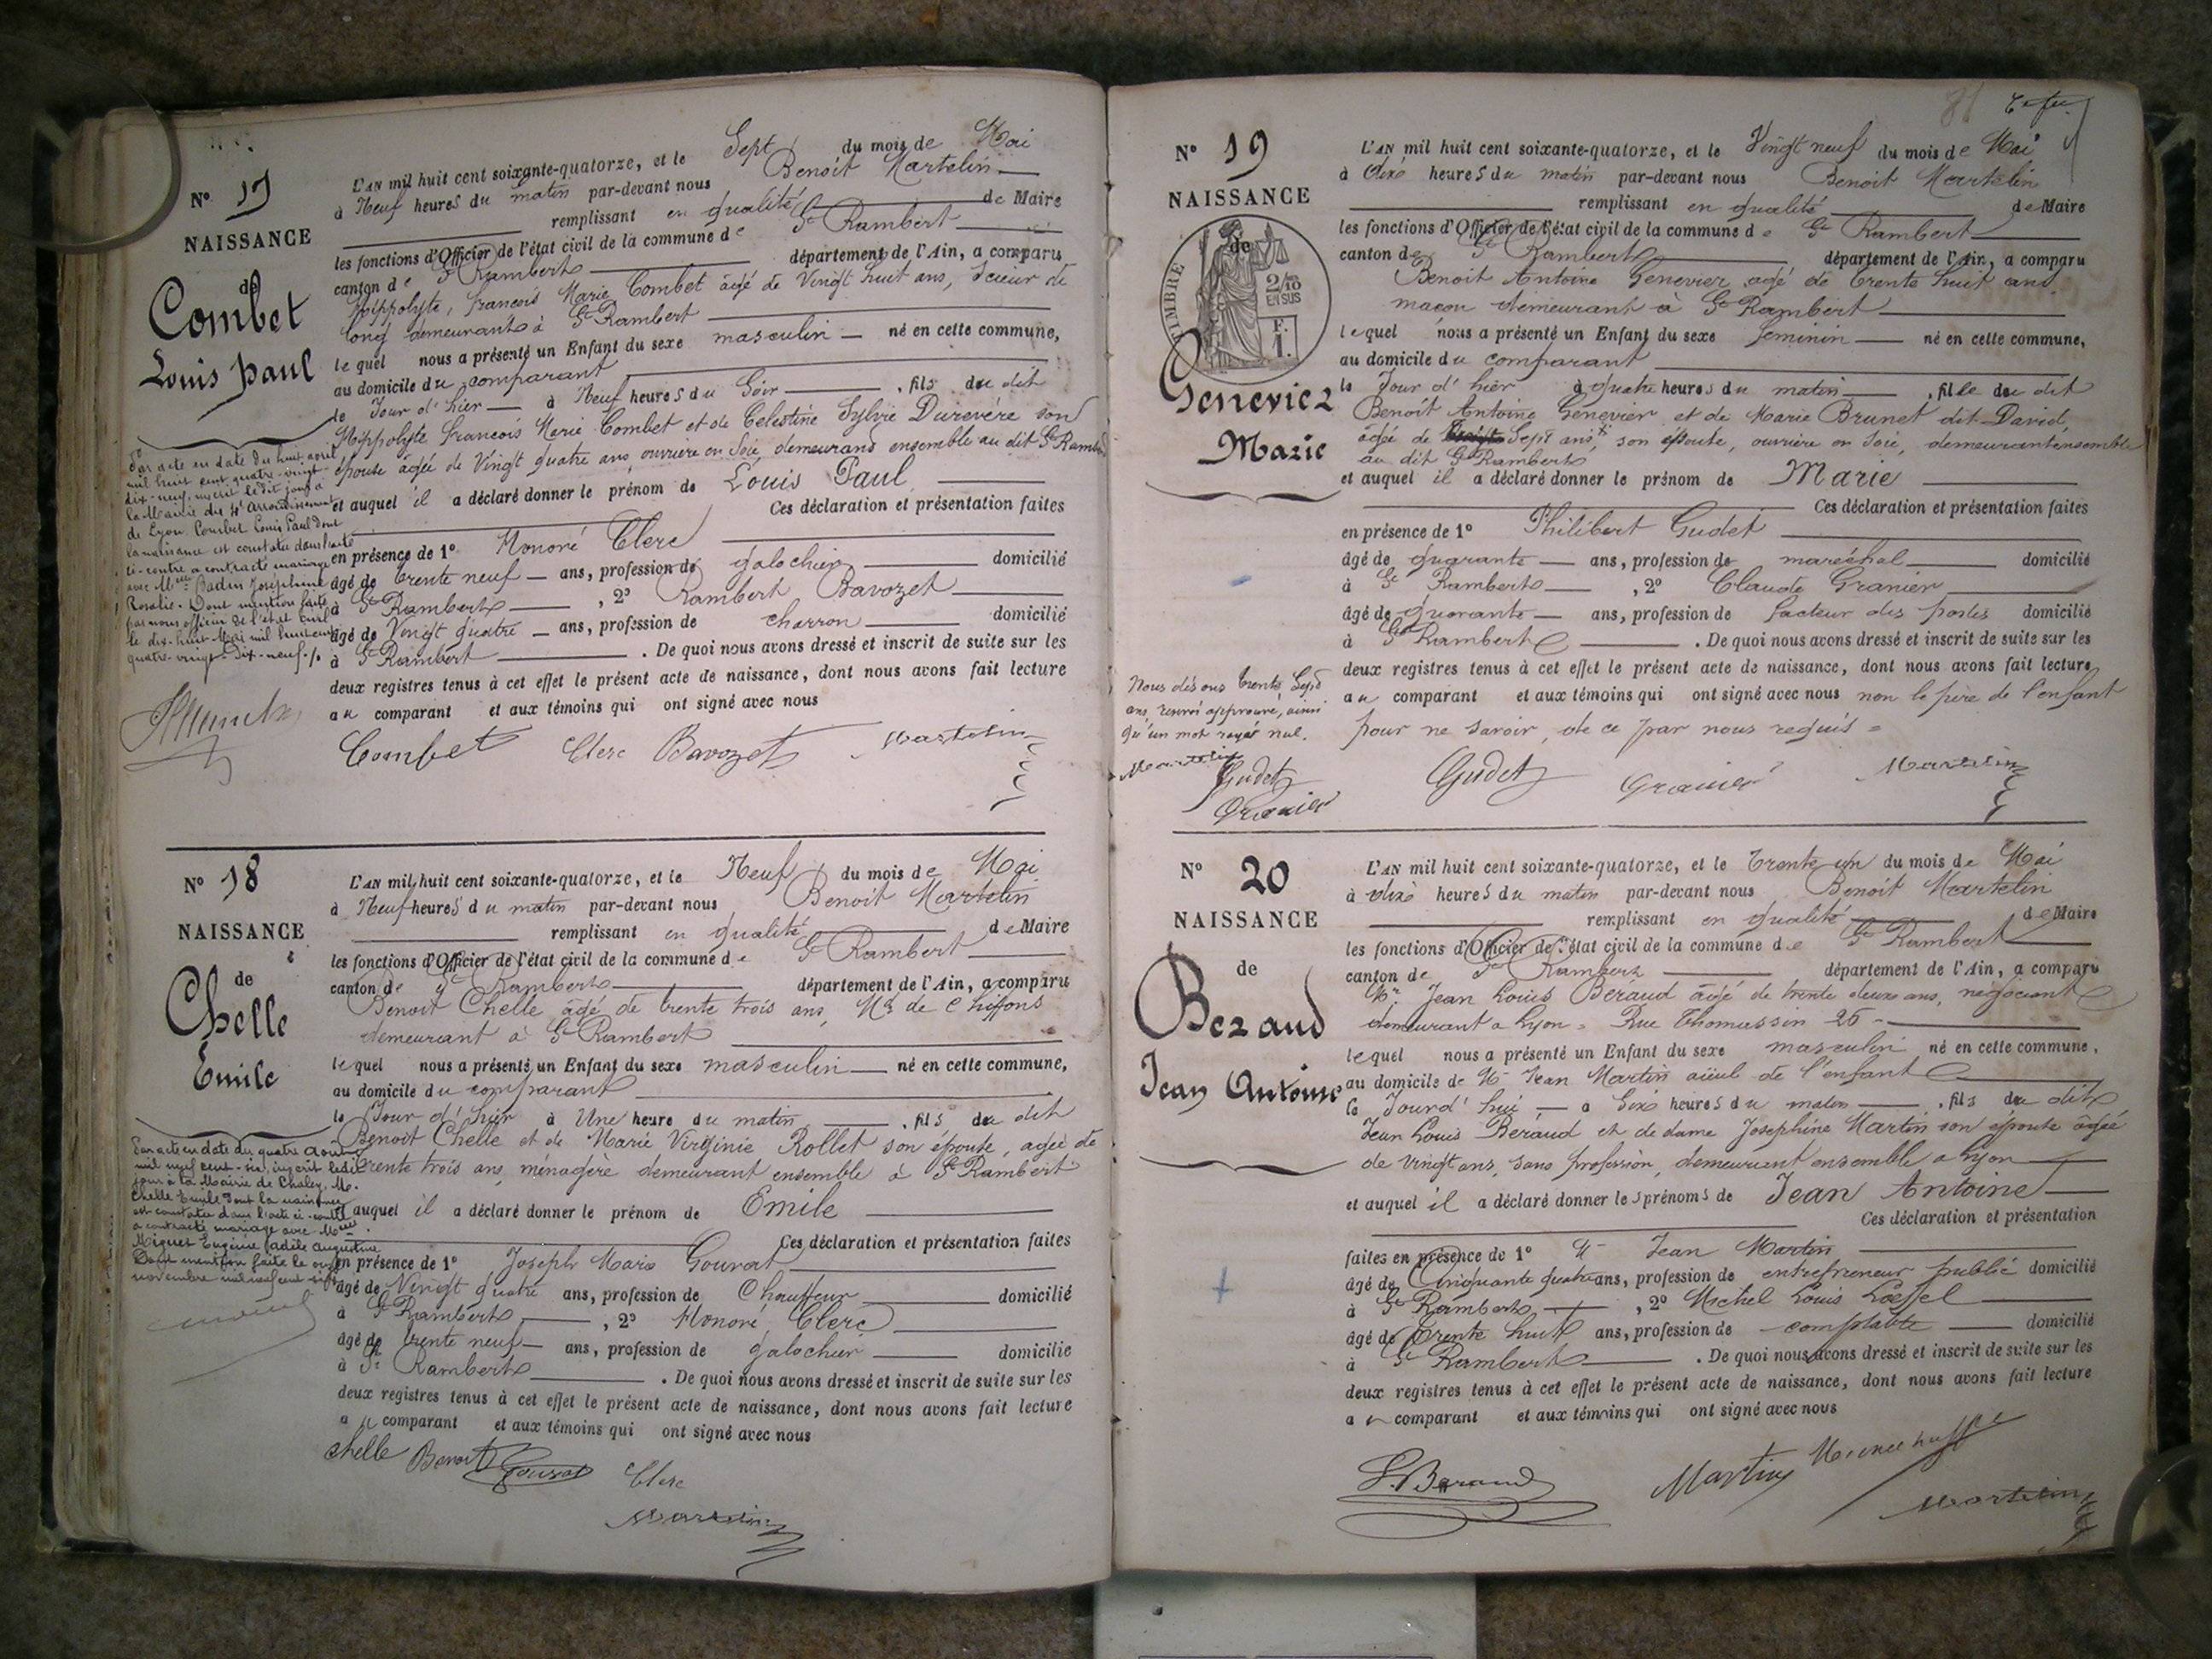 Nº 17
NAISSANCE
de
Combet
Louis paul
L'AN mil huit cent soixante-quatorze, et le Sept du mois de Mai
à Neuf heures du matin par-devant nous Benoit Martelin
remplissant en qualité de Maire
les fonctions d'Officier de l'état civil de la commune de St Rambert
canton de St Rambert département de l'Ain, a comparu
Hippolyte, françois Marie Combet âgé de Vingt huit ans, Scieur de
long demeurant à St Rambert
lequel nous a présenté un Enfant du sexe masculin né en cette commune,
au domicile du comparant
le Jour d'hier à Neuf heures du Soir, fils du dit
Hippolyte francois Marie Combet et de Celestine Sylvie Durevère son
épouse âgée de Vingt quatre ans ouvriere en Soie, demeurand ensemble au dit St Rambert
et auquel il a déclaré donner le prénom de Louis Paul
Ces déclaration et présentation faites
en présence de 1º Honoré Clerc
âgé de trente neuf ans, profession de galochier domicilié
à St Rambert, 2º Rambert Bavozet
âgé de Vingt quatre ans, profession de charron domicilié
à St Rambert. De quoi nous avons dressé et inscrit de suite sur les
deux registres tenus à cet effet le présent acte de naissance, dont nous avons fait lecture
au comparant et aux témoins qui ont signé avec nous
Combet Clerc Bavozet Martelin
Par acte en date du huit avril
mil huit cent quatre-vingt-
dix-neuf, inscrit le dit jour à
la Mairie du 4e arrondissement
de Lyon Combet Louis Paul dont
la naissance est constatée dans l'acte
ci-contre a contracté mariage
avec Mlle Badin Joséphine
Rosalie. Dont mention faite
par nous officier de l'état civil
le dix-huit Mai mil huit cent
quatre-vingt-dix-neuf
Nº 18
NAISSANCE
de
Chelle
Emile
L'AN mil huit cent soixante-quatorze, et le Neuf du mois de Mai
à Neuf heures du matin par-devant nous Benoit Martelin
remplissant en qualité de Maire
les fonctions d'Officier de l'état civil de la commune de St Rambert
canton de St Rambert département de l'Ain, a comparu
Benoit Chelle âgé de trente trois ans, Md de chiffons
demeurant à St Rambert
lequel nous a présenté un Enfant du sexe masculin né en cette commune,
au domicile du comparant
le Jour d'hier à Une heure du matin, fils du dit
Benoit Chelle et de Marie Virginie Rollet son épouse, agée de
trente trois ans, ménagère demeurant ensemble à St Rambert
et auquel il a déclaré donner le prénom de Emile
Ces déclaration et présentation faites
en présence de 1º Joseph Marie Gourat
âgé de Vingt quatre ans, profession de Chauffeur domicilié
à St Rambert, 2º Honoré Clerc
âgé de trente neuf ans, profession de galochier domicilié
à St Rambert. De quoi nous avons dressé et inscrit de suite sur les
deux registres tenus à cet effet le présent acte de naissance, dont nous avons fait lecture
au comparant et aux témoins qui ont signé avec nous
Chelle Benoit Gourat Clerc
Martelin
Par acte en date du quatre Aout
mil neuf cent-six, inscrit ledit
jour à la Mairie de Chaley, M.
Chelle Emile dont la naissance
est constatée dans l'acte ci-contre
a contracté mariage avec Mlle
Miguet Eugénie Adèle Augustine
Dont mention faite le onze
novembre mil neuf cent six
Nº 19
NAISSANCE
de
TIMBRE
2/10
EN SUS
F.
1.
Genevier
Marie
L'AN mil huit cent soixante-quatorze, et le Vingt neuf du mois de Mai
à dix heures du matin par-devant nous Benoit Martelin
remplissant en qualité de Maire
les fonctions d'Officier de l'état civil de la commune de St Rambert
canton de St Rambert département de l'Ain, a comparu
Benoit Antoine Genevier agé de trente huit ans
maçon demeurant à St Rambert
lequel nous a présenté un Enfant du sexe feminin né en cette commune,
au domicile du comparant
le Jour d'hier à quatre heures du matin, fille du dit
Benoit Antoine Genevier et de Marie Brunet dit David,
âgée de Sept ans, son épouse, ouvrière en Soie, demeurant ensemble
au dit St Rambert
et auquel il a déclaré donner le prénom de Marie
Ces déclaration et présentation faites
en présence de 1º Philibert Gudet
âgé de quarante ans, profession de maréchal domicilié
à St Rambert, 2º Claude Granier
âgé de quarante ans, profession de facteur des postes domicilié
à St Rambert. De quoi nous avons dressé et inscrit de suite sur les
deux registres tenus à cet effet le présent acte de naissance, dont nous avons fait lecture
au comparant et aux témoins qui ont signé avec nous non le père de l'enfant
pour ne savoir, de ce par nous requis
Gudet Granier Martelin
Nous disons trente Sept
ans, renvoi approuvé, ainsi
qu'un mot rayé nul.
Martelin
Gudet
Granier
Nº 20
NAISSANCE
de
Beraud
Jean Antoine
L'AN mil huit cent soixante-quatorze, et le trente un du mois de Mai
à dix heures du matin par-devant nous Benoit Martelin
remplissant en qualité de Maire
les fonctions d'Officier de l'état civil de la commune de St Rambert
canton de St Rambert département de l'Ain, a comparu
Mr Jean Louis Béraud âgé de trente deux ans, négociant
demeurant a Lyon, Rue Thomassin 26
lequel nous a présenté un Enfant du sexe masculin né en cette commune,
au domicile de Mr Jean Martin aïeul de l'enfant
le Jourd'hui à Six heures du matin, fils du dit
Jean Louis Beraud et de dame Josephine Martin son épouse âgée
de vingt ans, sans profession, demeurant ensemble a Lyon
et auquel il a déclaré donner les prénoms de Jean Antoine
Ces déclaration et présentation
faites en présence de 1º Mr Jean Martin
âgé de Cinquante quatre ans, profession de entrepreneur public domicilié
à St Rambert, 2º Michel Louis Loeffel
âgé de trente huit ans, profession de comptable domicilié
à St Rambert. De quoi nous avons dressé et inscrit de suite sur les
deux registres tenus à cet effet le présent acte de naissance, dont nous avons fait lecture
au comparant et aux témoins qui ont signé avec nous
L. Beraud Martin
Martelin